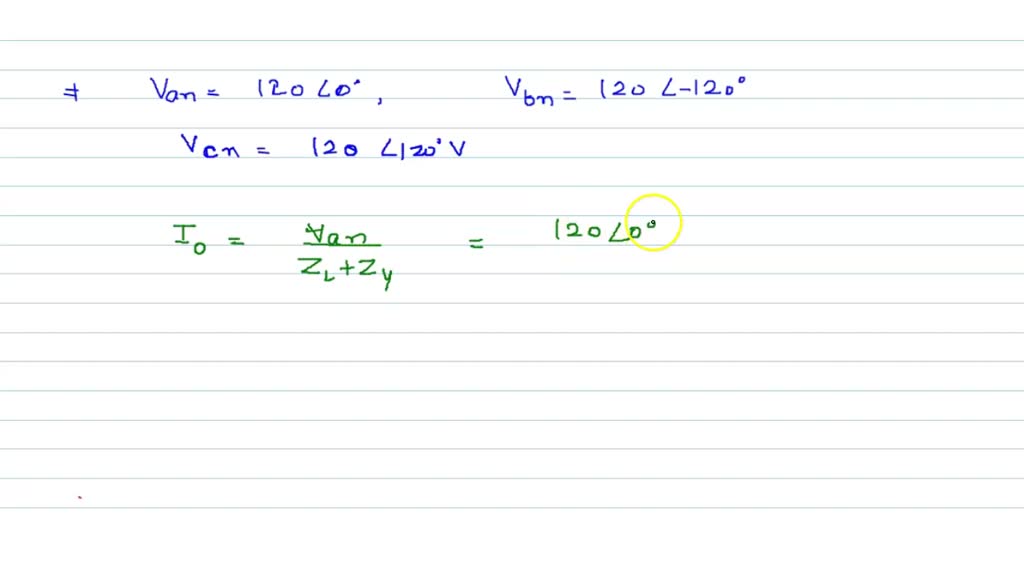 ⇒ Van = 120 ∠0°, Vbn = 120 ∠-120°
Vcn = 120 ∠120° V
I₀ = Van / (ZL + ZY) = 120 ∠0°